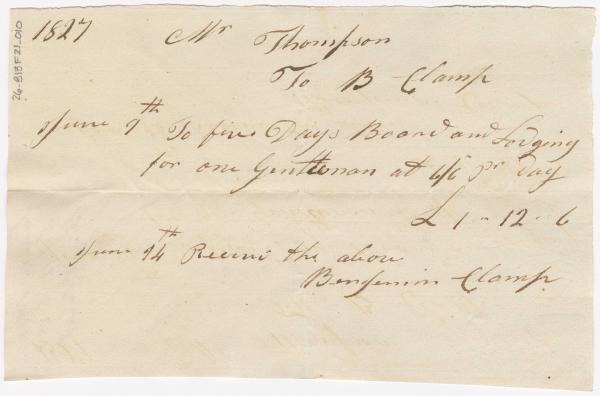 26-B18F21-010
1827 Mr Thompson
To B Clamp
June 9th To five Days Board and Lodging
for one Gentleman at 6/6 pr Day
£ 1-12-6
June 14th Receivd the above
Benjemon Clamp